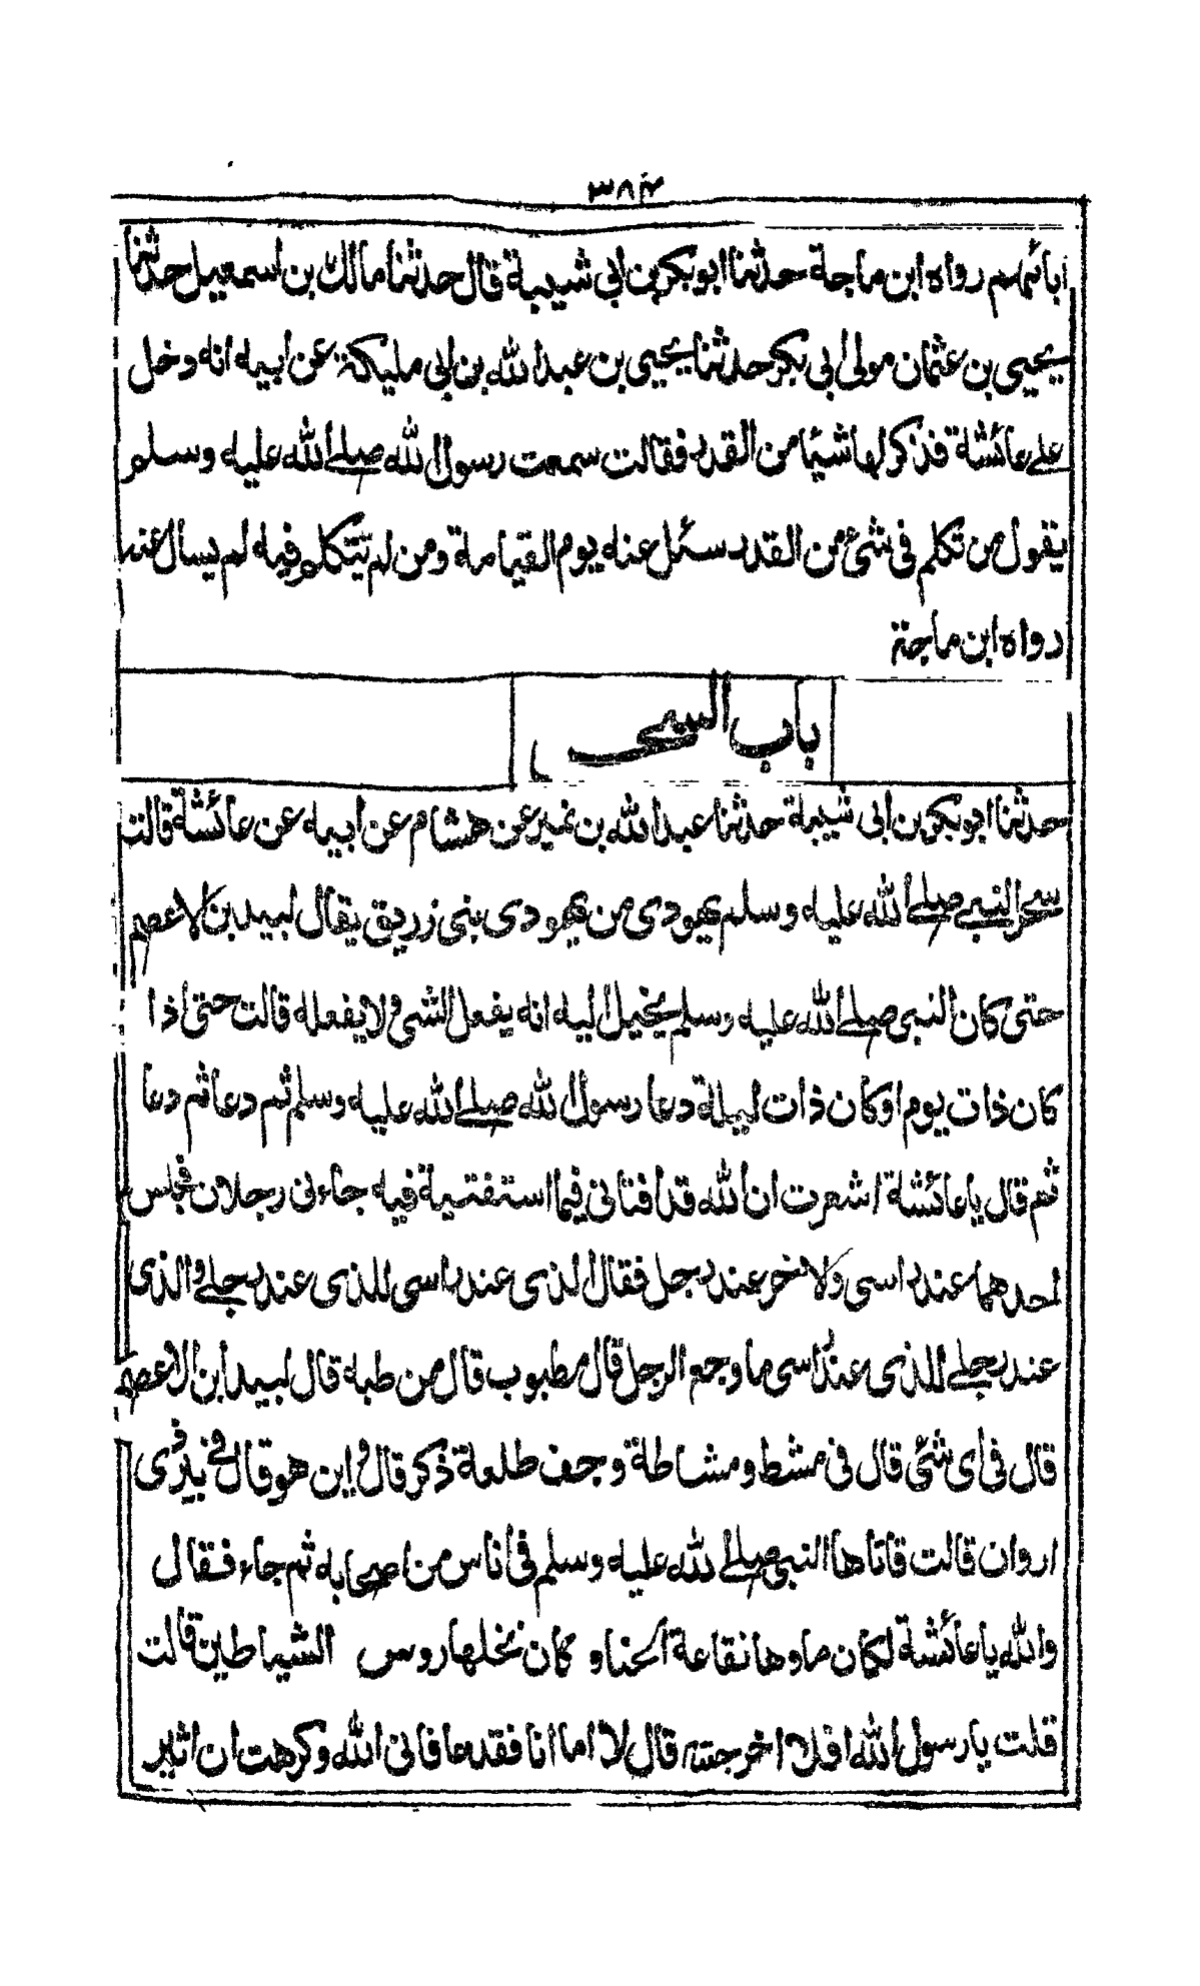 ٣٨٣
ابائهم رواه ابن ماجة حدثنا ابو بكر بن ابى شيبة قال حدثنا مالك بن اسمعيل حدثنا
يحيى بن عثمان مولى ابى بكر حدثنا يحيى بن عبد الله بن ابى مليكة عن ابيه انه دخل
على عائشة فذكر لها شيئا من القدر فقالت سمعت رسول الله صلى الله عليه وسلم
يقول من تكلم فى شئ من القدر سئل عنه يوم القيامة ومن لم يتكلم فيه لم يسال عنه
رواه ابن ماجة
باب السحر
حدثنا ابو بكر بن ابى شيبة حدثنا عبد الله بن نمير عن هشام عن ابيه عن عائشة قالت
سحر النبى صلى الله عليه وسلم يهودى من يهودى بنى زريق يقال لبيد بن الاعصم
حتى كان النبى صلى الله عليه وسلم يخيل اليه انه يفعل الشى ولا يفعله قالت حتى اذا
كان ذات يوم او كان ذات ليلة دعا رسول الله صلى الله عليه وسلم ثم دعا ثم دعا
ثم قال يا عائشة اشعرت ان الله قد افتانى فيما استفتيته فيه جاءنى رجلان فجلس
احدهما عند راسى ولاخر عند رجل فقال الذى عند راسى للذى عند رجلے والذى
عند رجلے للذى عند راسى ما وجع الرجل قال مطبوب قال من طبه قال لبيد ابن الاعصم
قال فى اى شئى قال فى مشط ومشاطة وجف طلعة ذكر قال و اين هو قال فى بير ذى
اروان قالت قاتاها النبى صلى الله عليه وسلم فى اناس من اصحابه ثم جاء فقال
والله يا عائشة لكان ماوها نقاعة الحنا و كان نخلها روس الشياطين قالت
قلت يا رسول الله افلا اخرجته قال لا اما انا فقد عافانى الله وكرهت ان اثير